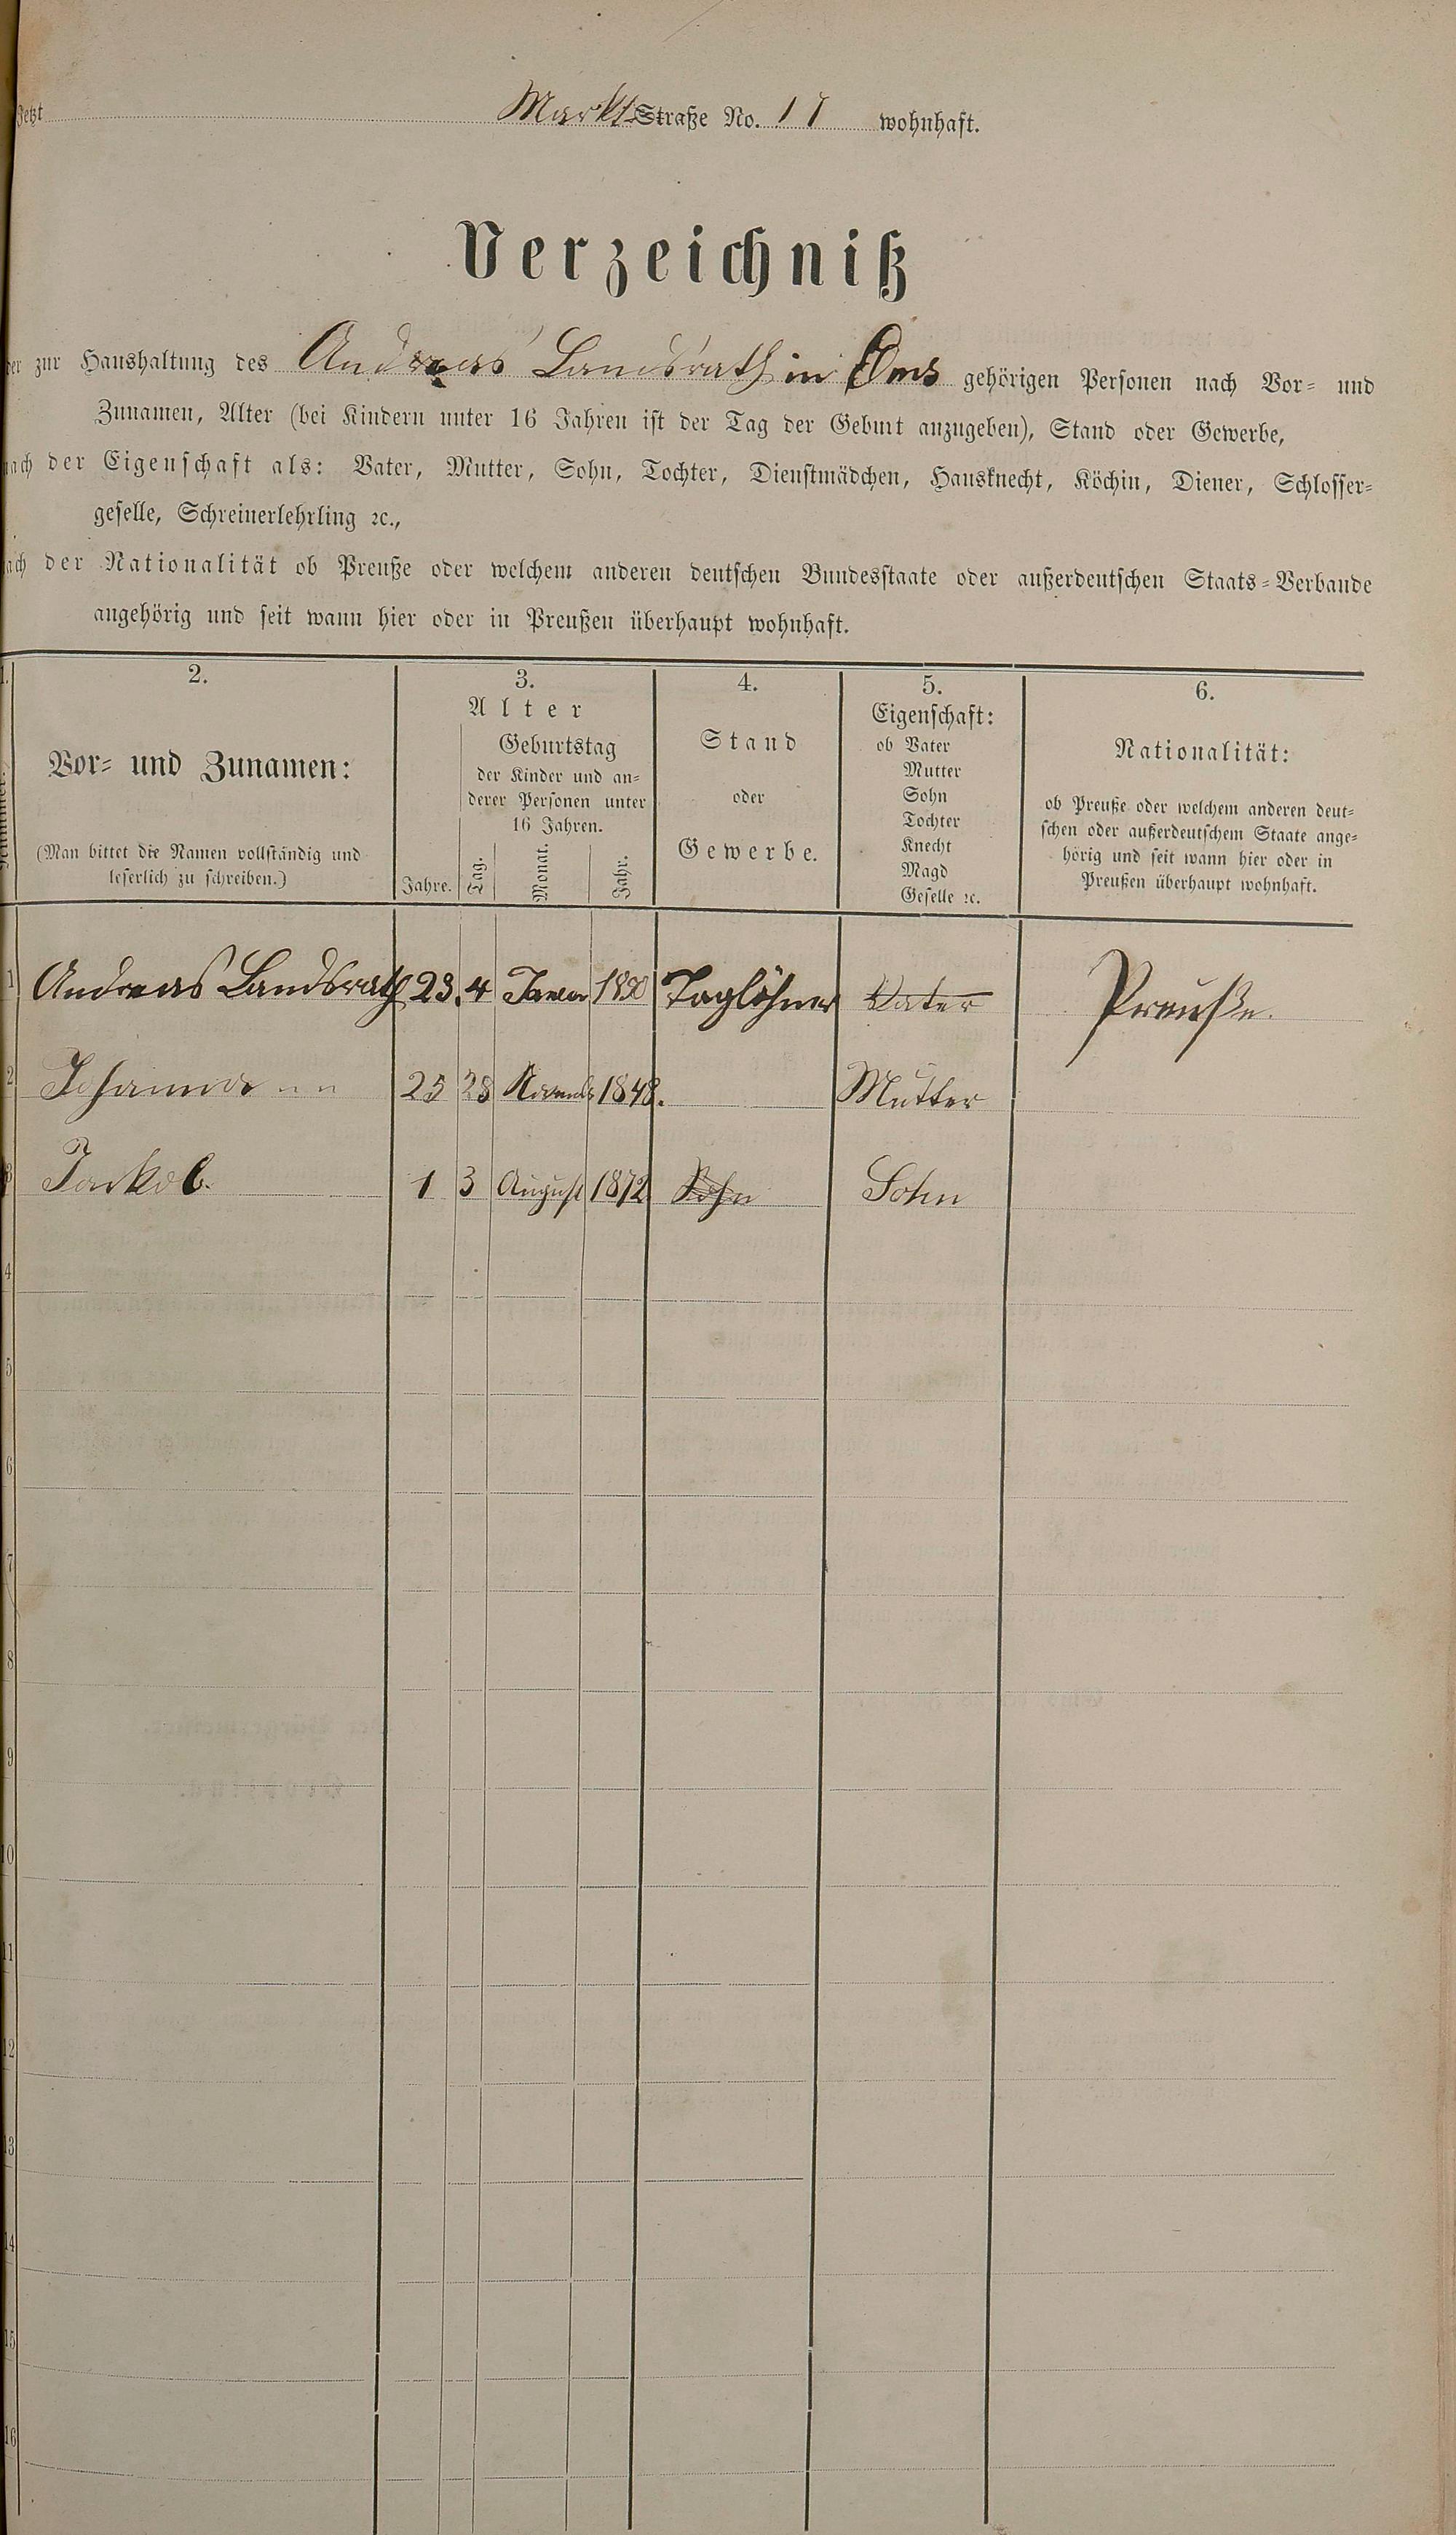 Jetzt Markt Straße No. 17 wohnhaft.
Verzeichniß
der zur Haushaltung des Andreas Landsrath in Ems gehörigen Personen nach Vor- und
Zunamen, Alter (bei Kindern unter 16 Jahren ist der Tag der Geburt anzugeben), Stand oder Gewerbe,
nach der Eigenschaft als: Vater, Mutter, Sohn, Tochter, Dienstmädchen, Hausknecht, Köchin, Diener, Schlosser-
geselle, Schreinerlehrling ꝛc.,
nach der Nationalität ob Preuße oder welchem anderen deutschen Bundesstaate oder außerdeutschen Staats-Verbande
angehörig und seit wann hier oder in Preußen überhaupt wohnhaft.
1.
Nummer.
2.
Vor- und Zunamen:
(Man bittet die Namen vollständig und
leserlich zu schreiben.)
3.
Alter
Jahre.
Geburtstag
der Kinder und an-
derer Personen unter
16 Jahren.
Tag. Monat. Jahr.
4.
Stand
oder
Gewerbe.
5.
Eigenschaft:
ob Vater
Mutter
Sohn
Tochter
Knecht
Magd
Geselle ꝛc.
6.
Nationalität:
ob Preuße oder welchem anderen deut-
schen oder außerdeutschem Staate ange-
hörig und seit wann hier oder in
Preußen überhaupt wohnhaft.
1 Andreas Landsrath 23. 4 Janua 1850 Taglöhner Vater Preuße.
2 Johanna " " 25 28 Novemb 1848. Mutter
3 Jackob. 1 3 August 1872 Sohn Sohn
4
5
6
7
8
9
10
11
12
13
14
15
16